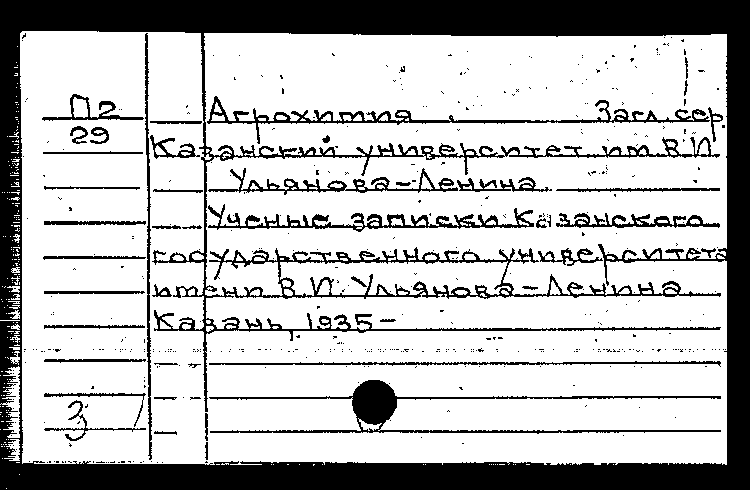 П2 Агрохимия. Загл. сер.
29
Казанский университет им. В.И.
Ульянова-Ленина
Ученые записки Казанского
государственного университета
имени В.И. Ульянова-Ленина.
Казань, 1935-
З